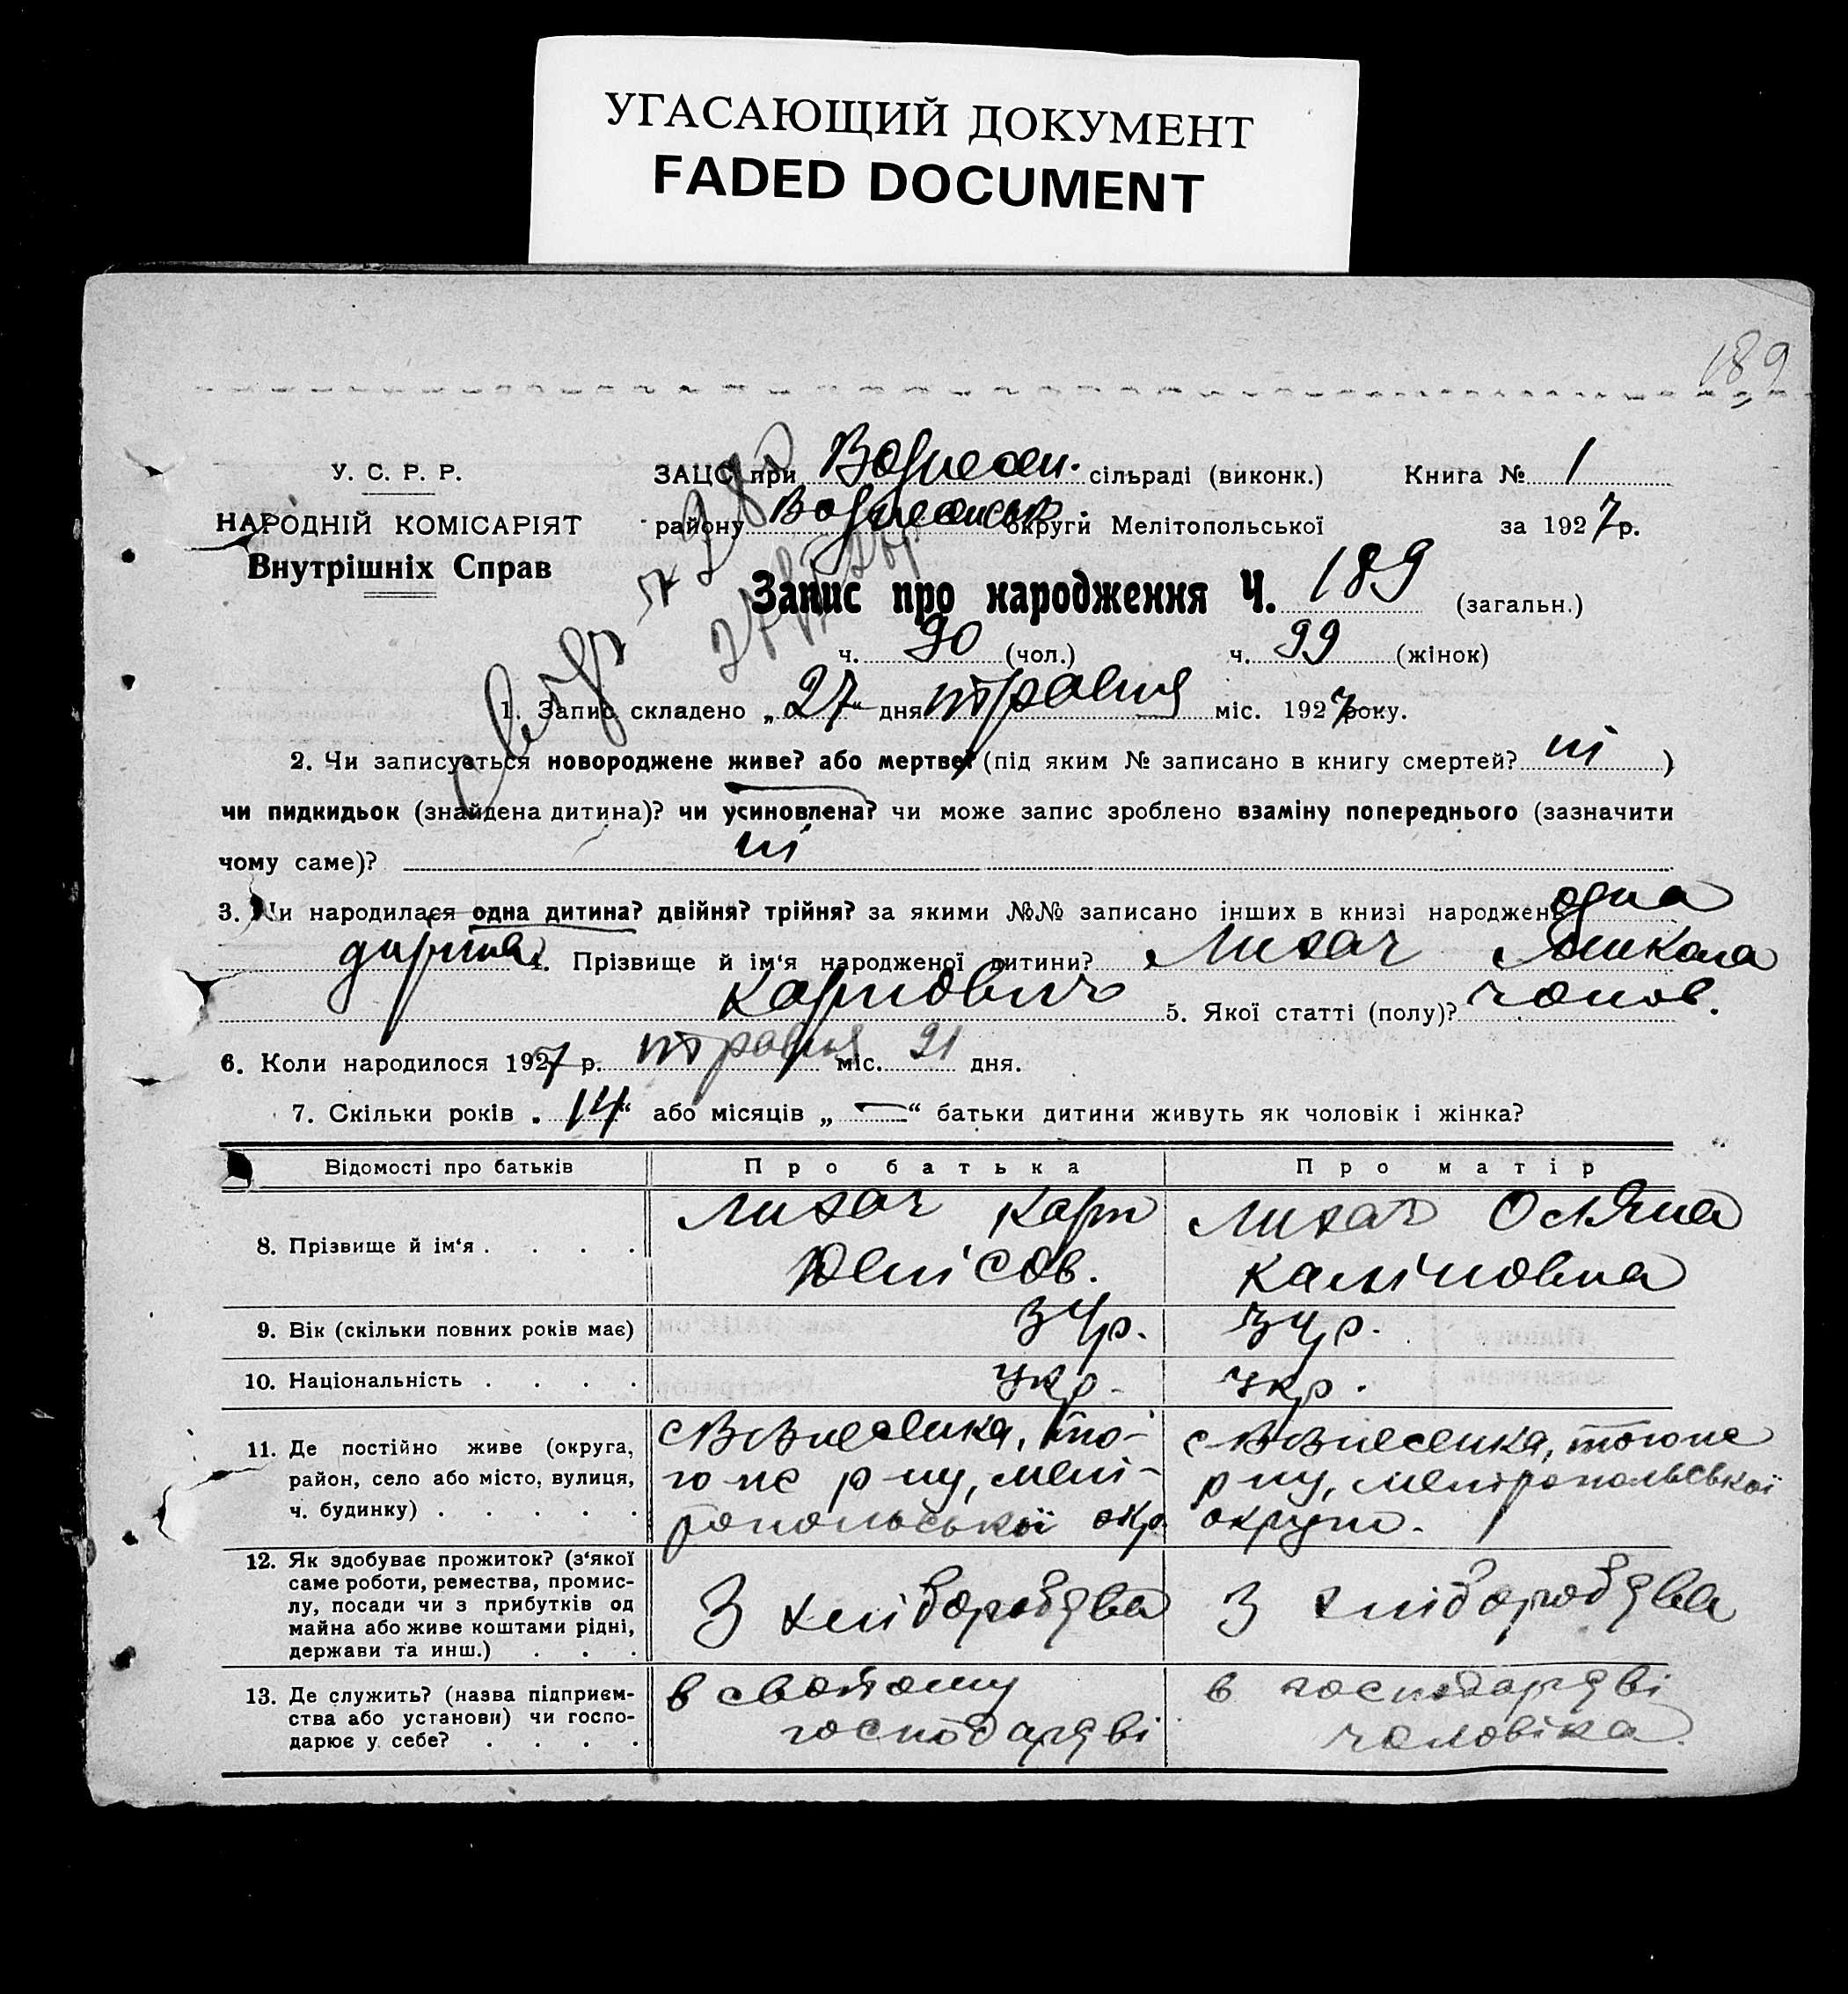 УГАСАЮЩИЙ ДОКУМЕНТ
FADED DOCUMENT
189
У. С. Р. Р.
НАРОДНІЙ КОМІСАРІЯТ
Внутрішніх Справ
ЗАЦС при Вознесен. сільраді (виконк.) Книга № 1
району Вознесенськ. округи Мелітопольської за 1927 р.
Запис про народження Ч. 189 (загальн.)
ч. 90 (чол.) ч. 99 (жінок)
1. Запис складено „27“ дня травня міс. 1927 року.
2. Чи записується новороджене живе? або мертве? (під яким № записано в книгу смертей? ні )
чи пидкидьок (знайдена дитина)? чи усиновлена? чи може запис зроблено взаміну попереднього (зазначити
чому саме)? ні
3. Чи народилася одна дитина? двійня? трійня? за якими №№ записано інших в книзі народжень одна
дитина 4. Прізвище й ім‘я народженої дитини? Лихач Микола
Карпович 5. Якої статті (полу)? чолов.
6. Коли народилося 1927 р. травня міс. 21 дня.
7. Скільки років „14“ або місяців „—“ батьки дитини живуть як чоловік і жінка?
Відомості про батьків Про батька Про матір
8. Прізвище й ім‘я . . . . Лихач Карп Денісов. Лихач Оляна Калініовна
9. Вік (скільки повних років має) 34 р. 34 р.
10. Національність . . . . укр. укр.
11. Де постійно живе (округа, район, село або місто, вулиця, ч. будинку) . . . . . с Вознесенка, того ж р ну, мелітопольської окр. с Вознесенка, того ж р ну, мелітопольської округи.
12. Як здобуває прожиток? (з‘якої саме роботи, ремества, промислу, посади чи з прибутків од майна або живе коштами рідні, держави та инш.) . . . З хліборобства З хліборобства
13. Де служить? (назва підприємства або установи) чи господарює у себе? . . . . в свойому господарстві в господарстві чоловіка